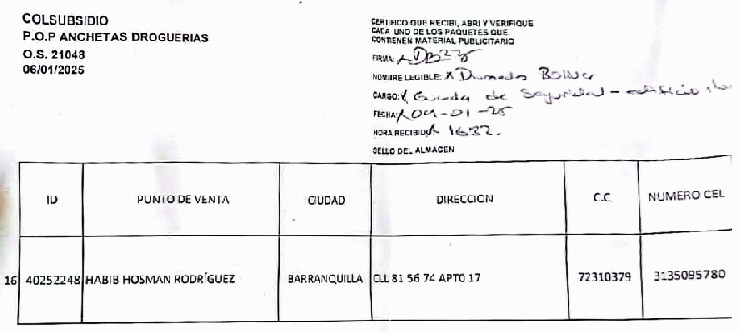 COLSUBSIDIO
P.O.P ANCHETAS DROGUERIAS
O.S. 21048
06/01/2025
CERTIFICO QUE RECIBI, ABRI Y VERIFIQUE
CADA UNO DE LOS PAQUETES QUE
CONTIENEN MATERIAL PUBLICITARIO
FIRMA: X
NOMBRE LEGIBLE: X Bolivar
CARGO: X Guarda de Seguridad - edificio
FECHA: X 09-01-25
HORA RECIBIDO: X 1632.
SELLO DEL ALMACEN
ID PUNTO DE VENTA CIUDAD DIRECCION C.C NUMERO CEL
16 40252248 HABIB HOSMAN RODRÍGUEZ BARRANQUILLA CLL 81 56 74 APTO 17 72310379 3135095780